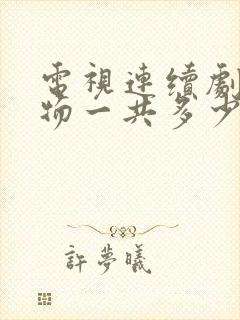 電視連續劇
物一共多少
許夢曦